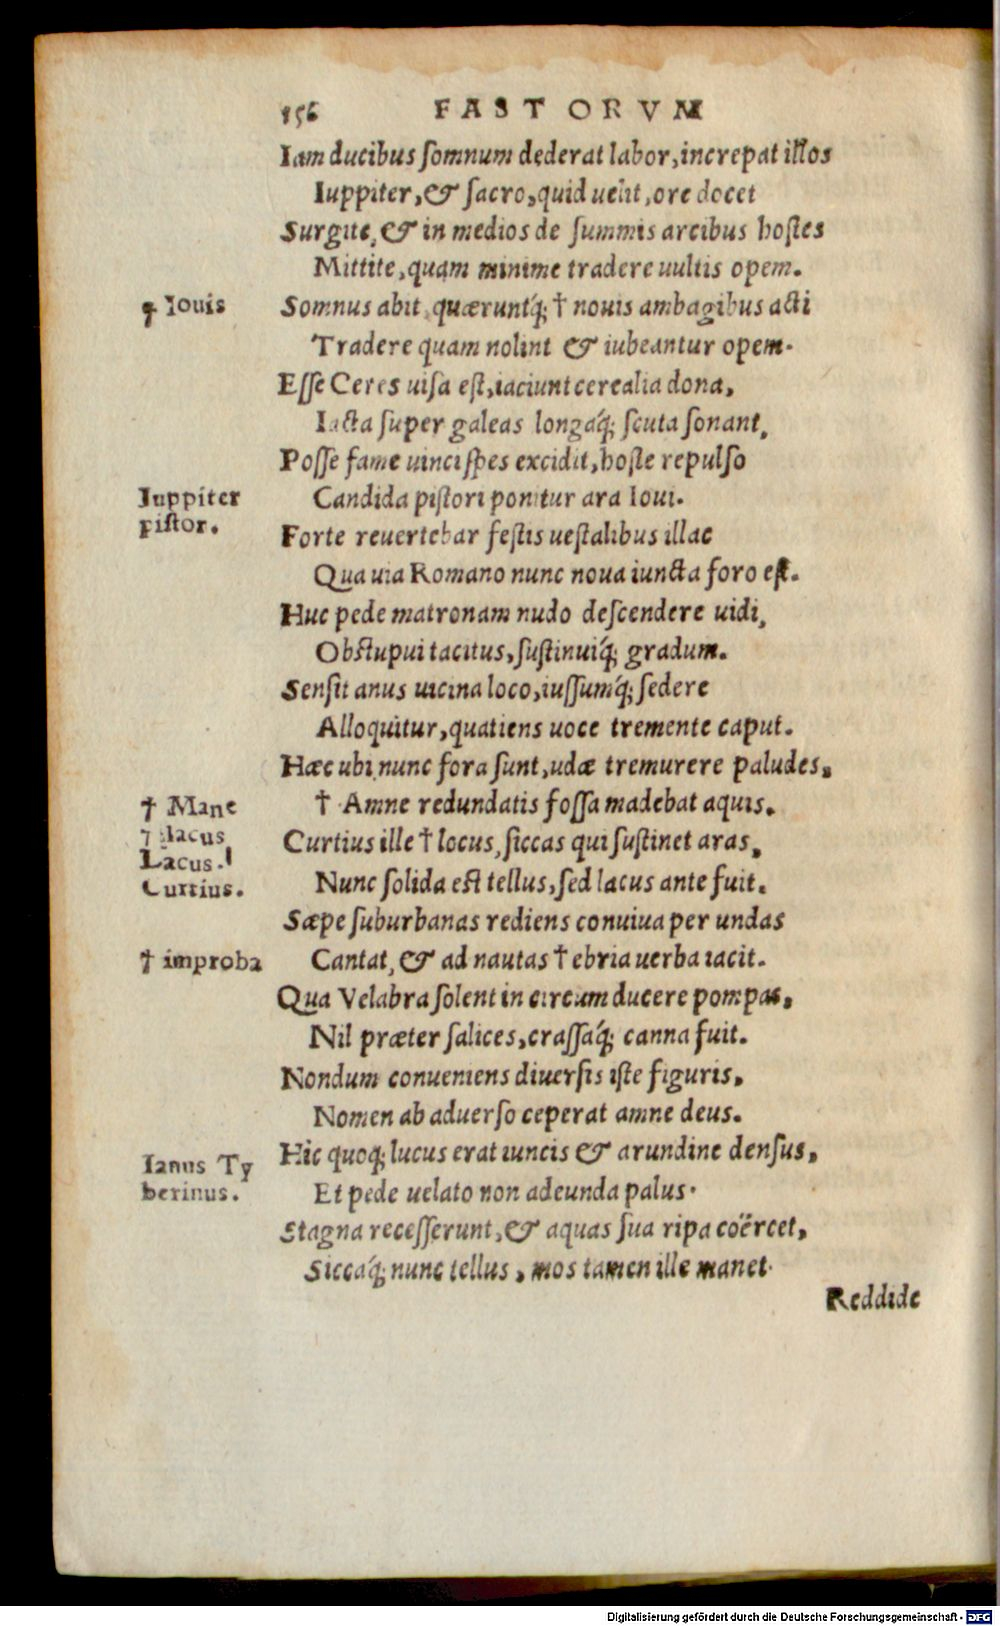 156 FASTORVM
Iam ducibus ſomnum dederat labor, increpat illos
Iuppiter, & ſacro, quid uelit, ore docet
Surgite, & in medios de ſummis arcibus hoſtes
Mittite, quam minime tradere uultis opem.
† Iouis
Somnus abit, quæruntq́; † nouis ambagibus acti
Tradere quam nolint & iubeantur opem.
Eſſe Ceres uiſa eſt, iaciunt cerealia dona,
Iacta ſuper galeas longaq́; ſcuta ſonant,
Poſſe fame uinci ſpes excidit, hoſte repulſo
Iuppiter
piſtor.
Candida piſtori ponitur ara Ioui.
Forte reuertebar feſtis ueſtalibus illac
Qua uia Romano nunc noua iuncta foro eſt.
Huc pede matronam nudo deſcendere uidi,
Obſtupui tacitus, ſuſtinuiq́; gradum.
Senſit anus uicina loco, iuſſumq́; ſedere
Alloquitur, quatiens uoce tremente caput.
Hæc ubi nunc fora ſunt, udæ tremurere paludes,
† Mane
† Amne redundatis foſſa madebat aquis.
† lacus
Lacus
Curtius.
Curtius ille † locus, ſiccas qui ſuſtinet aras,
Nunc ſolida eſt tellus, ſed lacus ante fuit.
Sæpe ſuburbanas rediens conuiua per undas
† improba
Cantat, & ad nautas † ebria uerba iacit.
Qua Velabra ſolent in circum ducere pompas,
Nil præter ſalices, craſſaq́; canna fuit.
Nondum conueniens diuerſis iſte figuris,
Nomen ab aduerſo ceperat amne deus.
Ianus Ty
berinus.
Hic quoq; lucus erat iuncis & arundine denſus,
Et pede uelato non adeunda palus.
Stagna receſſerunt, & aquas ſua ripa coërcet,
Siccaq́; nunc tellus, mos tamen ille manet.
Reddide
Digitalisierung gefördert durch die Deutsche Forschungsgemeinschaft - DFG